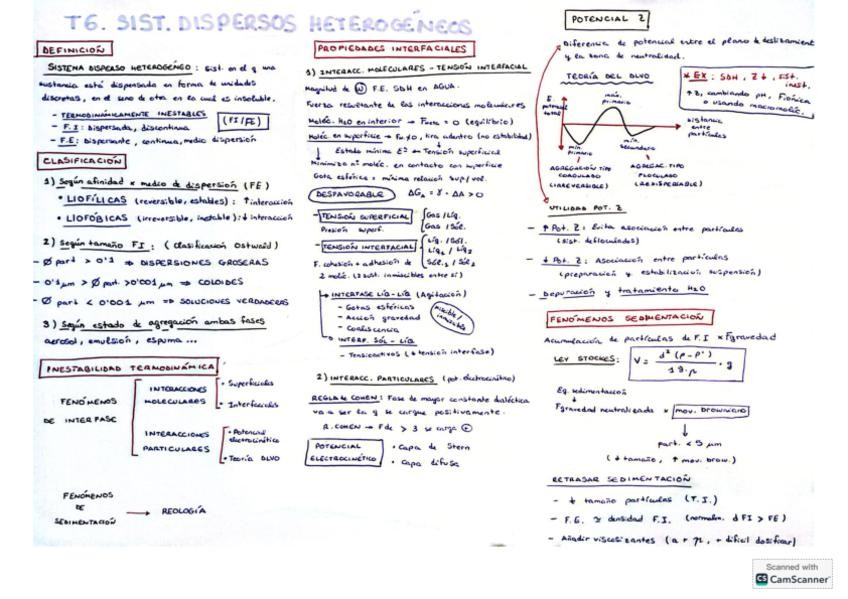 T6. SIST. DISPERSOS HETEROGÉNEOS
DEFINICION
SISTEMA DISPERSO HETEROGÉNEO: Sist. en el q una
sustancia está dispersada en forma de unidades
discretas, en el seno de otra en la cual es insoluble.
- TERMODINÁMICAMENTE INESTABLES
- F.I: dispersada, discontinua
(FI/FE)
- F.E: Dispersante, continua, medio dispersión
CLASIFICACIÓN
1) Según afinidad x medio de dispersión (FE)
• LIOFÍLICAS (reversible, estables): ↑ interacción
• LIOFÓBICAS (irreversible, inestable): ↓ interacción
2) Según tamaño F.I: (clasificación Ostwald)
- Ø part > 0'1 ⇒ DISPERSIONES GROSERAS
- 0'1 µm > Ø part. > 0'001 µm ⇒ COLOIDES
- Ø part < 0'001 µm ⇒ SOLUCIONES VERDADERAS
3) Según estado de agregación ambas fases
aerosol, emulsión, espuma ...
INESTABILIDAD TERMODINÁMICA
FENÓMENOS
DE INTERFASE
INTERACCIONES
MOLECULARES
• Superficiales
• Interfaciales
INTERACCIONES
PARTICULARES
• Potencial
electrocinético
• Teoría DLVO
FENÓMENOS
DE
SEDIMENTACIÓN
→ REOLOGÍA
PROPIEDADES INTERFACIALES
1) INTERACC. MOLECULARES - TENSIÓN INTERFACIAL
Magnitud de W F.E. SDH en AGUA.
Fuerza resultante de las interacciones moleculares
Moléc. H2O en interior → = 0 (equilibrio)
Moléc en superficie → ≠ 0, tira adentro (no estabilidad)
Estado mínima Eª → Tensión superficial
Minimiza nº moléc. en contacto con superficie
Gota esférica = mínima relación sup/vol.
DESFAVORABLE
ΔG = γ · ΔA > 0
- TENSIÓN SUPERFICIAL
Presión superf.
Gas / Líq.
Gas / Sól.
- TENSIÓN INTERFACIAL
Líq. / Sól.
Líq1 / Líq2
Sól.1 / Sól2
F. cohesión + adhesión de
2 moléc. (2 sust. inmiscibles entre sí)
INTERFASE LÍQ-LÍQ (Agitación)
- Gotas esféricas
- Acción gravedad
- Coalescencia
INTERF. SÓL - LÍQ
- Tensioactivos (↓ tensión interfase)
2) INTERACC. PARTICULARES (pot. electrocinético)
REGLA de COHEN: Fase de mayor constante dieléctrica
va a ser la q se cargue positivamente.
R. COHEN → F dc > 3 se carga ⊕
POTENCIAL
ELECTROCINÉTICO
• Capa de Stern
• Capa difusa
POTENCIAL Z
Diferencia de potencial entre el plano de deslizamiento
y la zona de neutralidad.
TEORÍA DEL DLVO
* EX: SDH, Z↓, Est. inest.
↑Z, cambiando pH, F. iónica
o usando macromoléc.
E.
potencial
total
máx.
primario
distancia
entre
partículas
mín.
primario
mín.
secundario
AGREGACIÓN TIPO
COAGULADO
(IRREVERSIBLE)
AGREGAC. TIPO
FLOCULADO
(REDISPERSABLE)
UTILIDAD POT. Z
- ↑ Pot. Z: Evita asociación entre partículas
(sist. defloculados)
- ↓ Pot. Z: Asociación entre partículas
(preparación y estabilización suspensión)
- Depuración y tratamiento H2O
FENÓMENOS SEDIMENTACIÓN
Acumulación de partículas de F.I x Fgravedad
LEY STOCKES:
V = d² (ρ - ρ') / 18·η · g
Eq. sedimentación
Fgravedad neutralizada x mov. browniano
part. < 5 µm
(↓ tamaño, ↑ mov. brow.)
RETRASAR SEDIMENTACIÓN
- ↓ tamaño partículas (T.I.)
- F.E. ≃ densidad F.I. (normalm. d FI > FE)
- Añadir viscosizantes (a + η, + difícil dosificar)
Scanned with
CS CamScanner